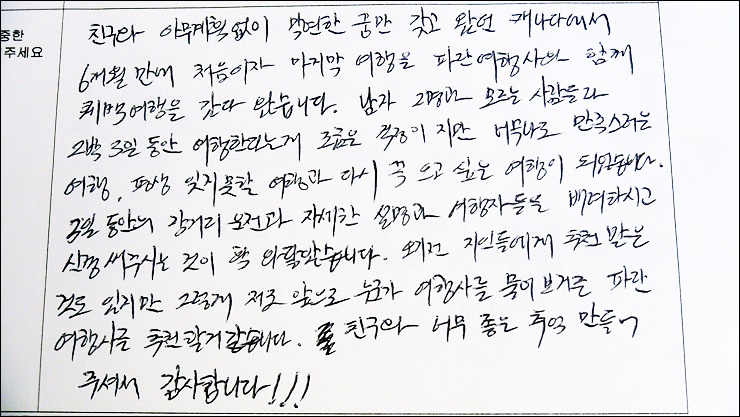 중한
주세요
친구와 아무계획없이 막연한 꿈만 갖고 왔던 캐나다에서
6개월 만에 처음이자 마지막 여행을 파란여행사와 함께
퀘벡여행을 갔다 왔습니다. 남자 2명과 모르는 사람들과
2박 3일 동안 여행한다는게 조금은 걱정이 지만 너무나도 만족스러운
여행, 평생 잊지못할 여행과 다시 꼭 오고 싶은 여행이 되었습니다.
3일 동안의 장거리 운전과 자세한 설명과 여행자들을 배려하시고
신경써주시는 것이 딱 와닿았습니다. 오기전 지인들에게 추천 받은
것도 있지만 그렇게 저도 앞으로 누군가 여행사를 물어보거든 파란
여행사를 추천할거같습니다. 친구와 너무 좋은 추억 만들어
주셔서 감사합니다!!!